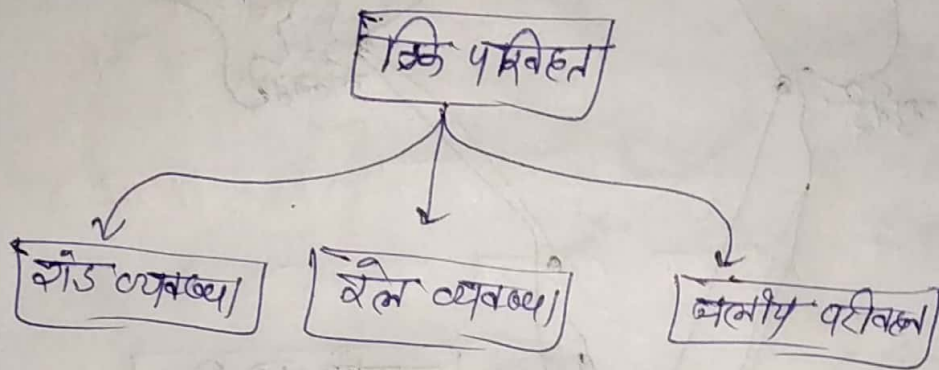 परिवहन
रोड व्यवस्था
रेल व्यवस्था
जलीय परीवहन